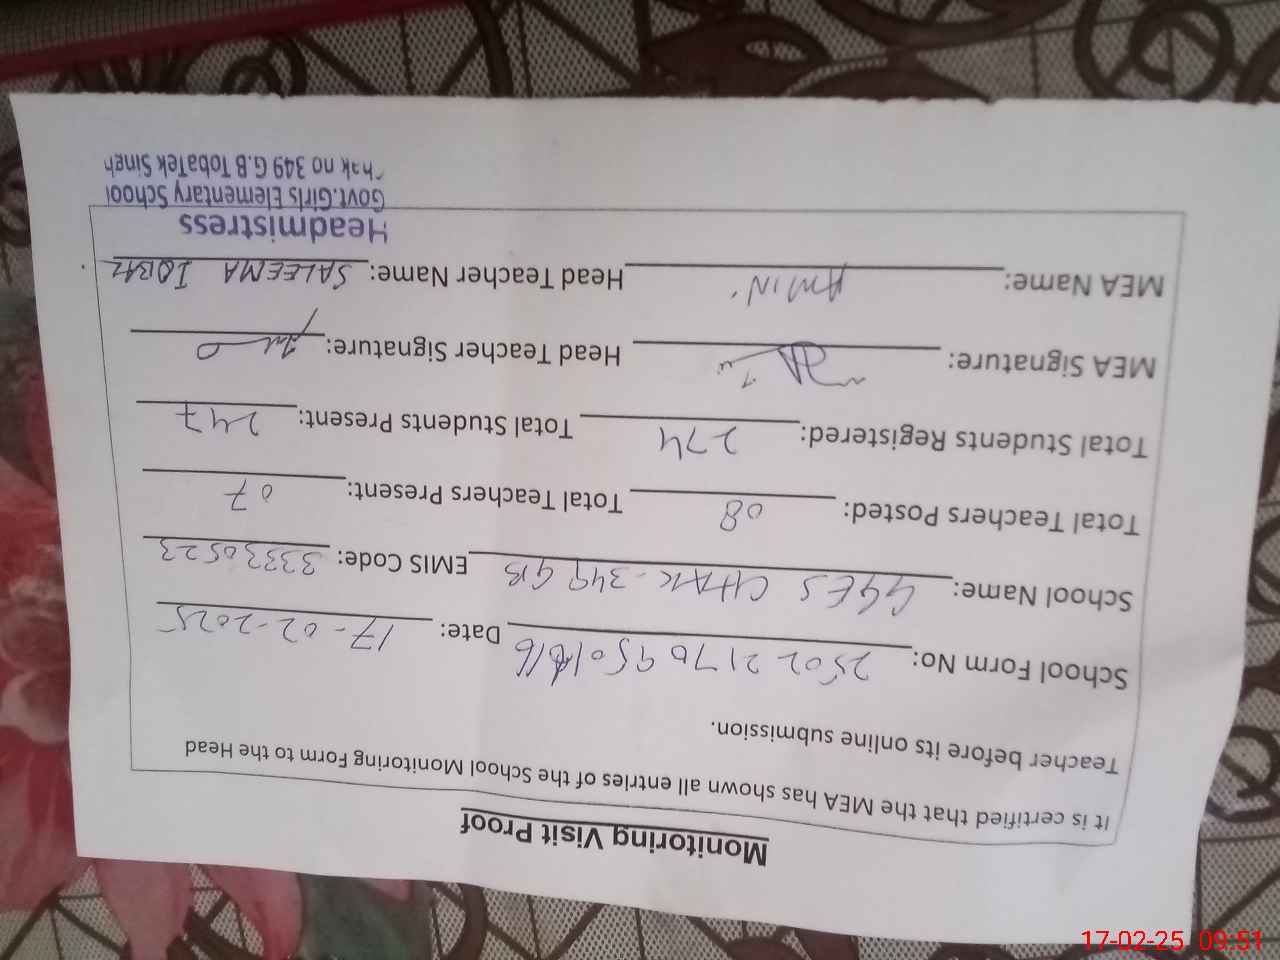 Monitoring Visit Proof
It is certified that the MEA has shown all entries of the School Monitoring Form to the Head
Teacher before its online submission.
School Form No: Date: 17-02-2025
School Name: GGES CHAK-349 GB EMIS Code: 33330523
Total Teachers Posted: 08 Total Teachers Present: 07
Total Students Registered: 274 Total Students Present: 247
MEA Signature: Head Teacher Signature:
MEA Name: AMIN Head Teacher Name: SALEEMA IQBAL
Headmistress
Govt.Girls Elementary School
no 349 G.B TobaTek Singh
17-02-25 09:51